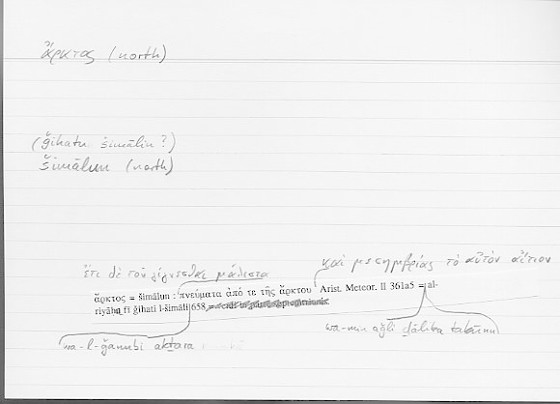 ἄρκτος (north)
(ǧihatu šimālin?)
šimālun (north)
ἔτι δὲ τοῦ γίγνεσθαι μάλιστα
καὶ μεσημβρίας τὸ αὐτὸν αἴτιον
ἄρκτος = šimālun : πνεύματα ἀπό τε τῆς ἄρκτου Arist. Meteor. II 361a5 = al-
riyāḥa fī ǧihati l-šimāli 658
wa-min aǧli ḏālika
wa-l-ǧanūbi akṯara